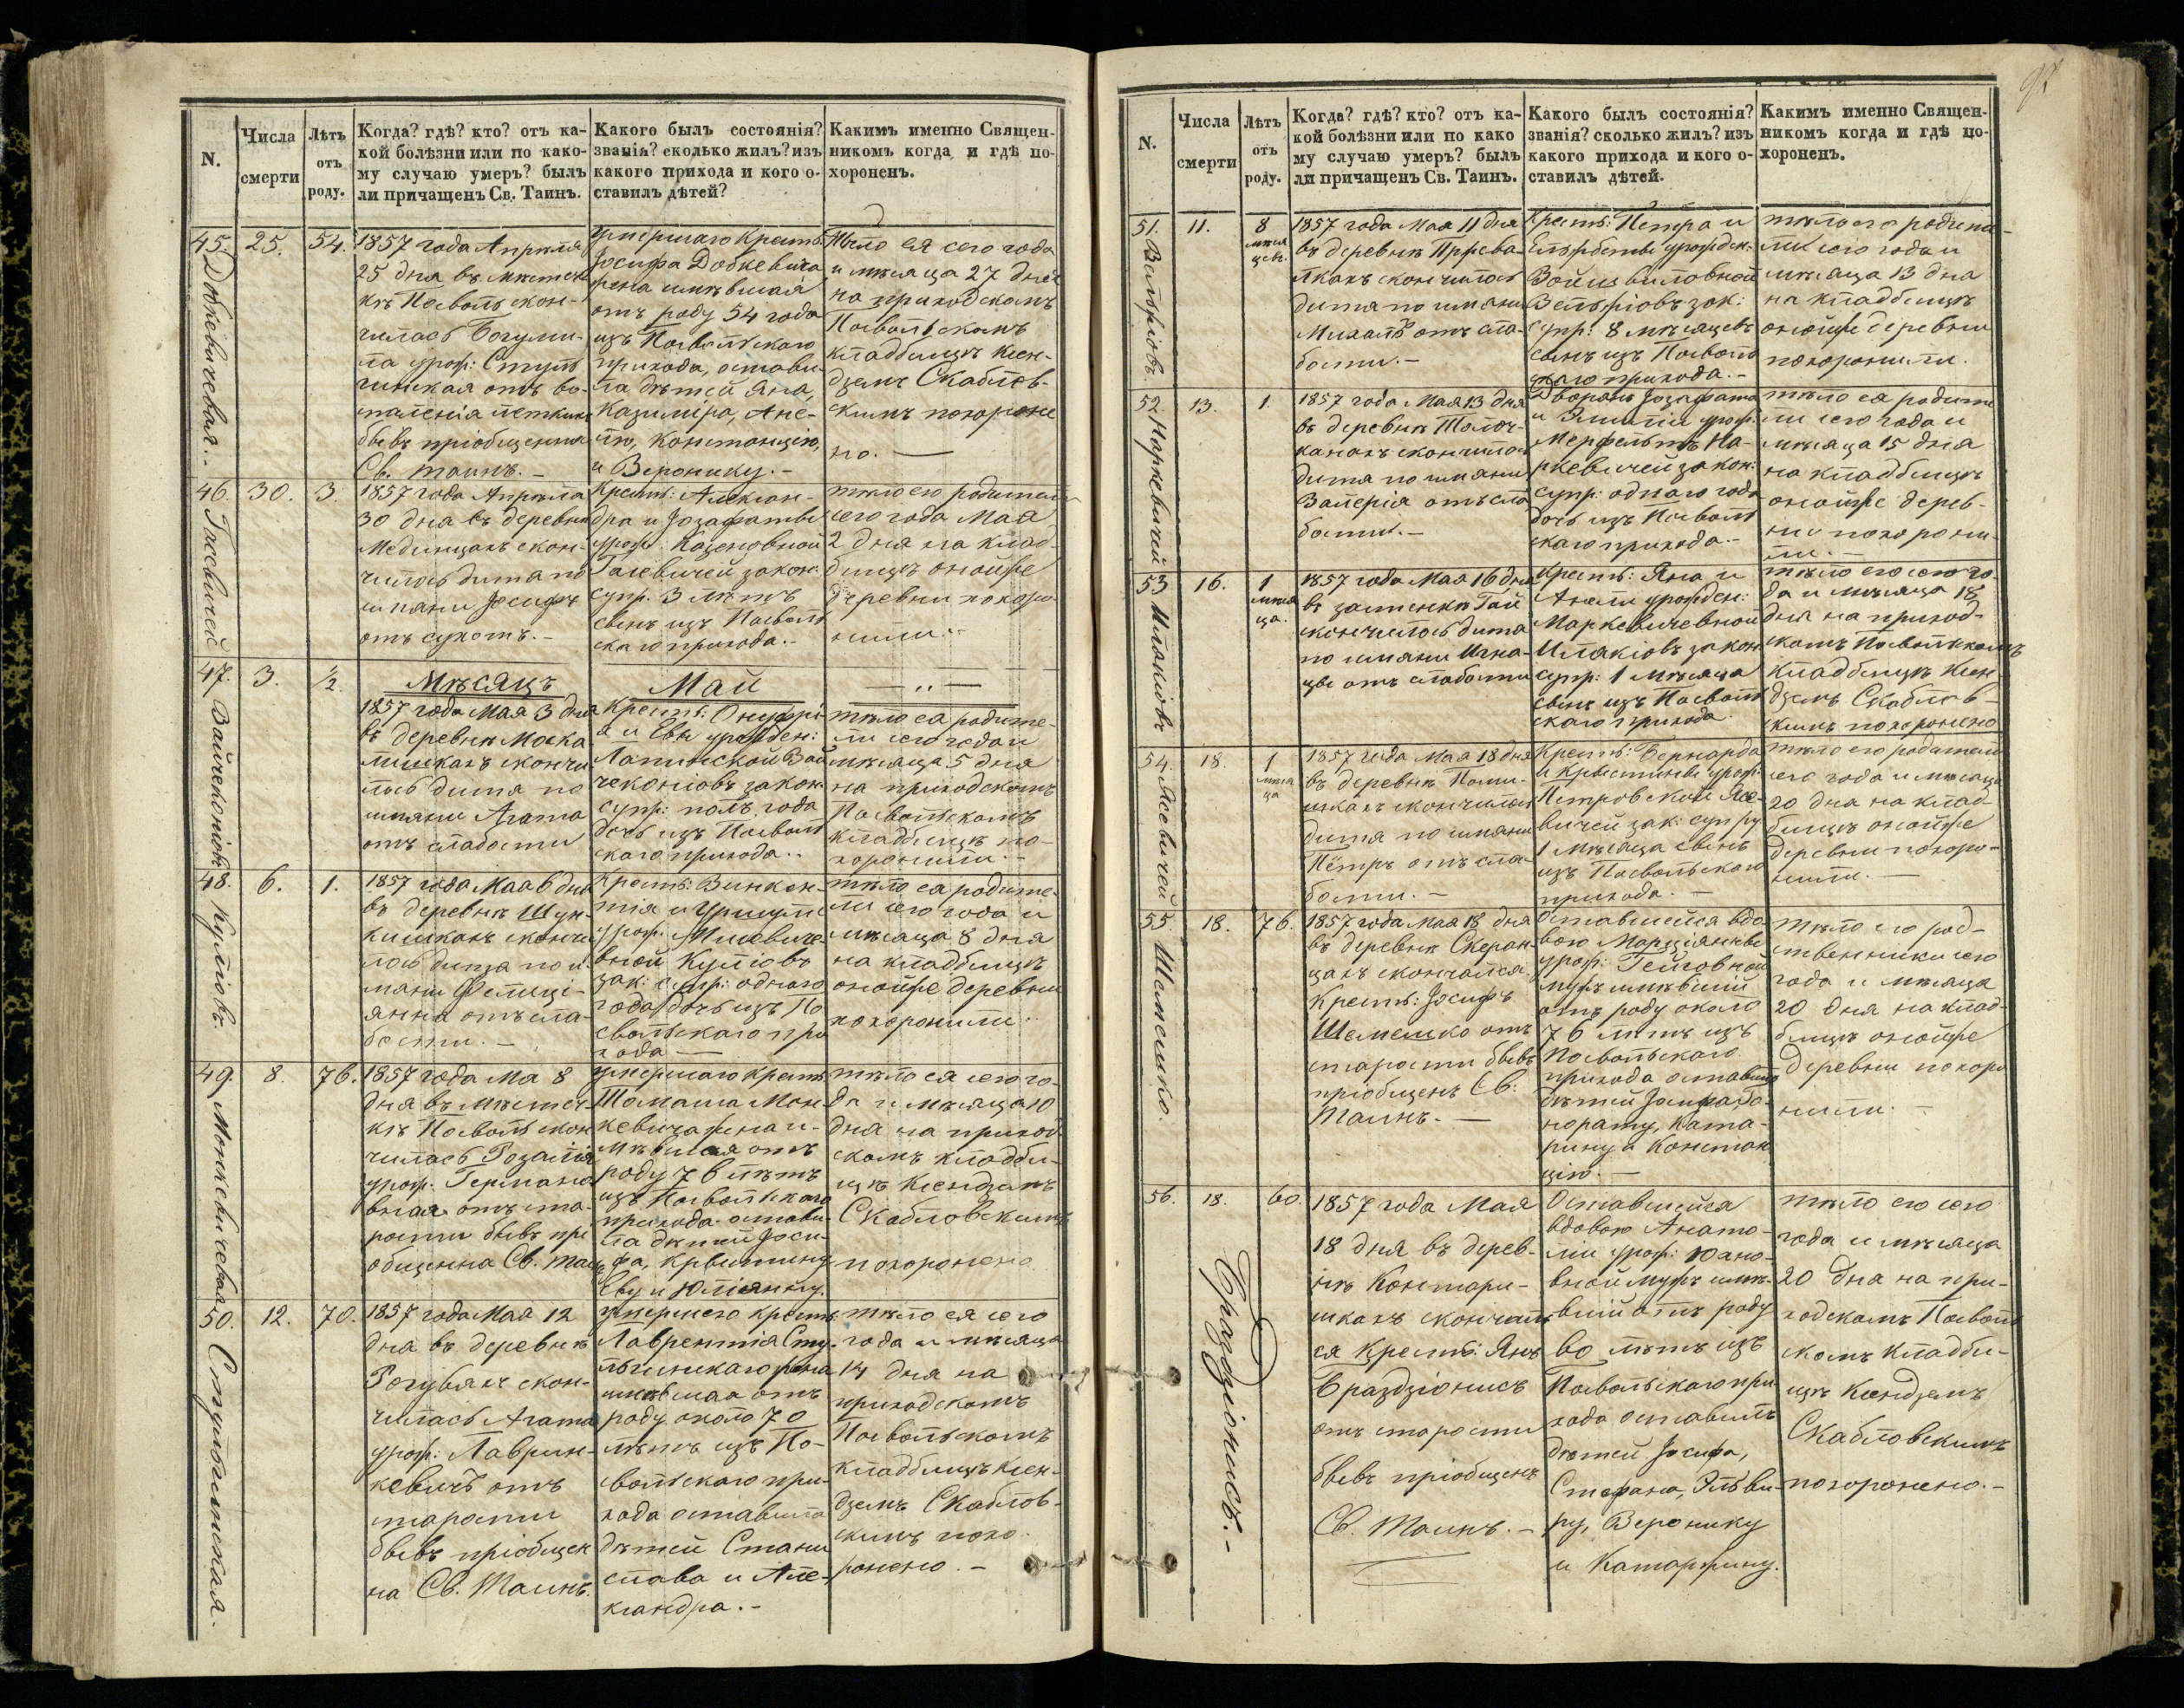 N.
Числа
смерти
Лѣтъ
отъ
роду.
Когда? гдѣ? кто? отъ ка-
кой болѣзни или по како-
му случаю умеръ? былъ
ли причащенъ Св. Таинъ.
Какого былъ состоянія?
званія? сколько жилъ? изъ
какого прихода и кого о-
ставилъ дѣтей?
Каким именно Священ-
никомъ когда и гдѣ по-
хороненъ.
45.
Добкевичевая.-
25.
54.
1857 года Апрѣля
25 дня въ мѣстеч
кѣ Посволь скон-
чилась Богуми-
ла урож: Стуль
гинская отъ во-
паленія легкихъ
бывъ пріобщенна
Св. таинъ.-
умершаго Крестъ:
Іосифа Добкевича
жена имѣвшая
отъ роду 54 года
изъ Посвольскаго
прихода, остави-
ла дѣтей Яна,
Казимера, Ане-
лю, Констанцію,
и Веронику.-
Тѣло ея сего года
и мѣсяца 27 дня
на приходскомъ
Посвольскомъ
кладбищѣ Ксен-
дземъ Скаблов-
скимъ похороне
но.-
46.
30.
3.
1857 года Апрѣля
30 дня въ деревнѣ
Мединцахъ скон-
чилось дитя по
имяни Іосифъ
отъ сухотъ.-
Крестъ: Алексан-
дра и Іозафаты
урож.
закон:
супр. 3 лѣтъ
сынъ изъ Посволь
скаго прихода.-
тѣло его родители
сего года Мая
2 дня на клад-
бищѣ онойже
деревни похоро-
нили.-
47.
Войчеконіовъ
3.
1/2.
Мѣсяцъ
Май
1857 года Мая 3 дня
въ деревнѣ Моска
лишкахъ скончи
лось дитя по
имяни Агата
отъ слабости
Крестъ: Онуфрі-
я и Евы урожден:
Лапинской Вой
чеконіовъ закон:
супр: полъ года
дочь изъ Посволь
скаго прихода..
тѣло ея родите-
ли сего года и
мѣсяца 5 дня
на приходскомъ
Посвольскомъ
кладбищѣ по-
хоронили.-
48.
Куліовъ.
6.
1.
1857 года Мая 6 дня
въ деревнѣ Шун-
кишкахъ сконч
лось дитя по и
мяни Фелиці-
янна отъ сла-
бости.-
Крестъ: Винкен-
тія и Уршули
урож.
вной Куліовъ
зак: супр: одного
года дочь изъ По
свольскаго при
хода.-
тѣло ея родите-
ли сего года и
мѣсяца 8 дня
на кладбищѣ
онойже деревни
похоронили..
49.
Монкевичевая
8.
76.
1857 года Ма 8
дня въ мѣстеч-
кѣ Посволь скон
чилась Розалія
урож. Германо
вная отъ ста-
рости бывъ прі
общенна Св. таинъ
умершаго крестъ:
Томаша Мон-
кевича жена и-
мѣвшая отъ
роду 76 лѣтъ
изъ Посвольскаго
прихода остави-
ла дѣтей Іоси-
фа, Крыстину
Еву и Юліянну.
тѣло ея сего го-
да и мѣсяца 10
дня на приход
скомъ кладби-
щѣ Ксендземъ
Скабловскимъ
похоронено
50.
Стульгинская.-
12.
70.
1857 года Мая 12
дня въ деревнѣ
скон-
чилась Агата
урож: Лаврин-
кевичъ отъ
старости
бывъ пріобщен
на Св. Таинъ.
умершего крестъ:
Лаврентія Сту-
льгинскаго жена
имѣвшая отъ
роду около 70
лѣтъ изъ По-
свольскаго при-
хода оставила
дѣтей Стани
слава и Але-
ксандра.-
тѣло ея сего
года и мѣсяца
14 дня на
приходскомъ
Посвольскомъ
кладбищѣ Ксен-
дземъ Скаблов-
скимъ похо-
ронено.-
N.
Числа
смерти
Лѣтъ
отъ
роду.
Когда? гдѣ? кто? отъ ка-
кой болѣзни или по како
му случаю умеръ? былъ
ли причащенъ Св. Таинъ.
Какого былъ состоянія?
званія? сколько жилъ? изъ
какого прихода и кого о-
ставилъ дѣтей.
Каким именно Священ-
никомъ когда и гдѣ по-
хороненъ.
51.
11.
8
мѣся
цевъ.
1857 года Мая 11 дня
въ деревнѣ
скончилось
дитя по имяни
Михалъ отъ сла-
бости.-
Крестъ: Петра и
Ельжбеты урожден:
зак:
супр: 8 мѣсяцевъ
сынъ изъ Посволь
скаго прихода.-
тѣло его родите-
ли сего года и
мѣсяца 13 дня
на кладбищѣ
онойже деревни
похоронили.
52.
Наркевичей
13.
1.
1857 года Мая 13 дня
въ деревнѣ Толоч-
канахъ скончилось
дитя по имяни
Валерія отъ сла
бости.-
Дворянъ Іозафата
и Эмиліи урож:
На-
ркевичей закон:
супр: одного года
дочь изъ Посволь
скаго прихода.-
тѣло ея родите
ли сего года и
мѣсяца 15 дня
на кладбищѣ
онойже дерев-
ни похорони-
ли.-
53.
16.
1
мѣся
ца.
1857 года Мая 16 дня
въ застенкѣ Гай
скончилось дитя
по имяни Игна-
цы отъ слабости
Крестъ: Яна и
Анели урожден:
Маркевичевной
закон
супр: 1 мѣсяца
сынъ изъ Посволь
скаго прихода
тѣло его сего го-
да и мѣсяца 18
дня на приход-
скомъ Посвольскомъ
кладбищѣ Ксен-
дземъ Скаблов-
скимъ похоронено
54.
Ясевичей
18.
1
мѣся
ца
1857 года Мая 18 дня
въ деревнѣ
скончилось
дитя по имяни
Пётръ отъ сла-
бости.-
Крестъ: Бернарда
и Крыстины урож:
Петровской Ясе-
вичей зак: супру
1 мѣсяца сынъ
изъ Посвольскаго
прихода.-
тѣло его родители
сего года и мѣсяца
20 дня на клад-
бищѣ онойже
деревни похоро-
нили.-
55.
Шемешко.
18.
76.
1857 года Мая 18 дня
въ деревнѣ Скеран-
цахъ скончался
Крестъ: Іосифъ
Шемешко отъ
старости бывъ
пріобщенъ Св:
Таинъ.-
Оставшейся вдо
вою Марціянны
урож: Гейговной
мужъ имѣвшій
отъ роду около
76 лѣтъ изъ
Посвольскаго
прихода оставилъ
дѣтей
норату, Ката-
рину и Констан
цію.-
тѣло его род-
ственники сего
года и мѣсяца
20 дня на клад-
бищѣ онойже
деревни похоро
нили.-
56.
Бразdzіонисъ.-
18.
60.
1857 года Мая
18 дня въ дерев-
нѣ Контари-
шкахъ скончал
ся Крестъ: Янъ
Браздзіонисъ
отъ старости
бывъ пріобщенъ
Св. Таинъ.-
Оставшейся
вдовою Анато-
ли урож: Юано-
вной мужъ имѣ-
вшій отъ роду
60 лѣтъ изъ
Посвольскаго при
хода оставилъ
дѣтей Іосифа,
Стефана, Эльви-
ру, Веронику
и Катаржину.
тѣло его сего
года и мѣсяца
20 дня на при-
ходскомъ Посволь
скомъ кладби-
щѣ Ксендземъ
Скабловскимъ
похоронено.-